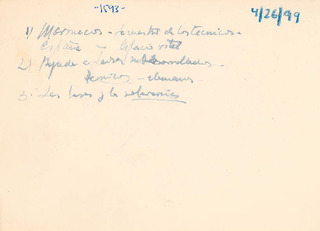 1593-
4/26/99
1) Marruecos - secuestro de los técnicos -
España - Espacio vital
2) Ayuda a países subdesarrollados -
técnicos - alemanes
3.- Las bases y la